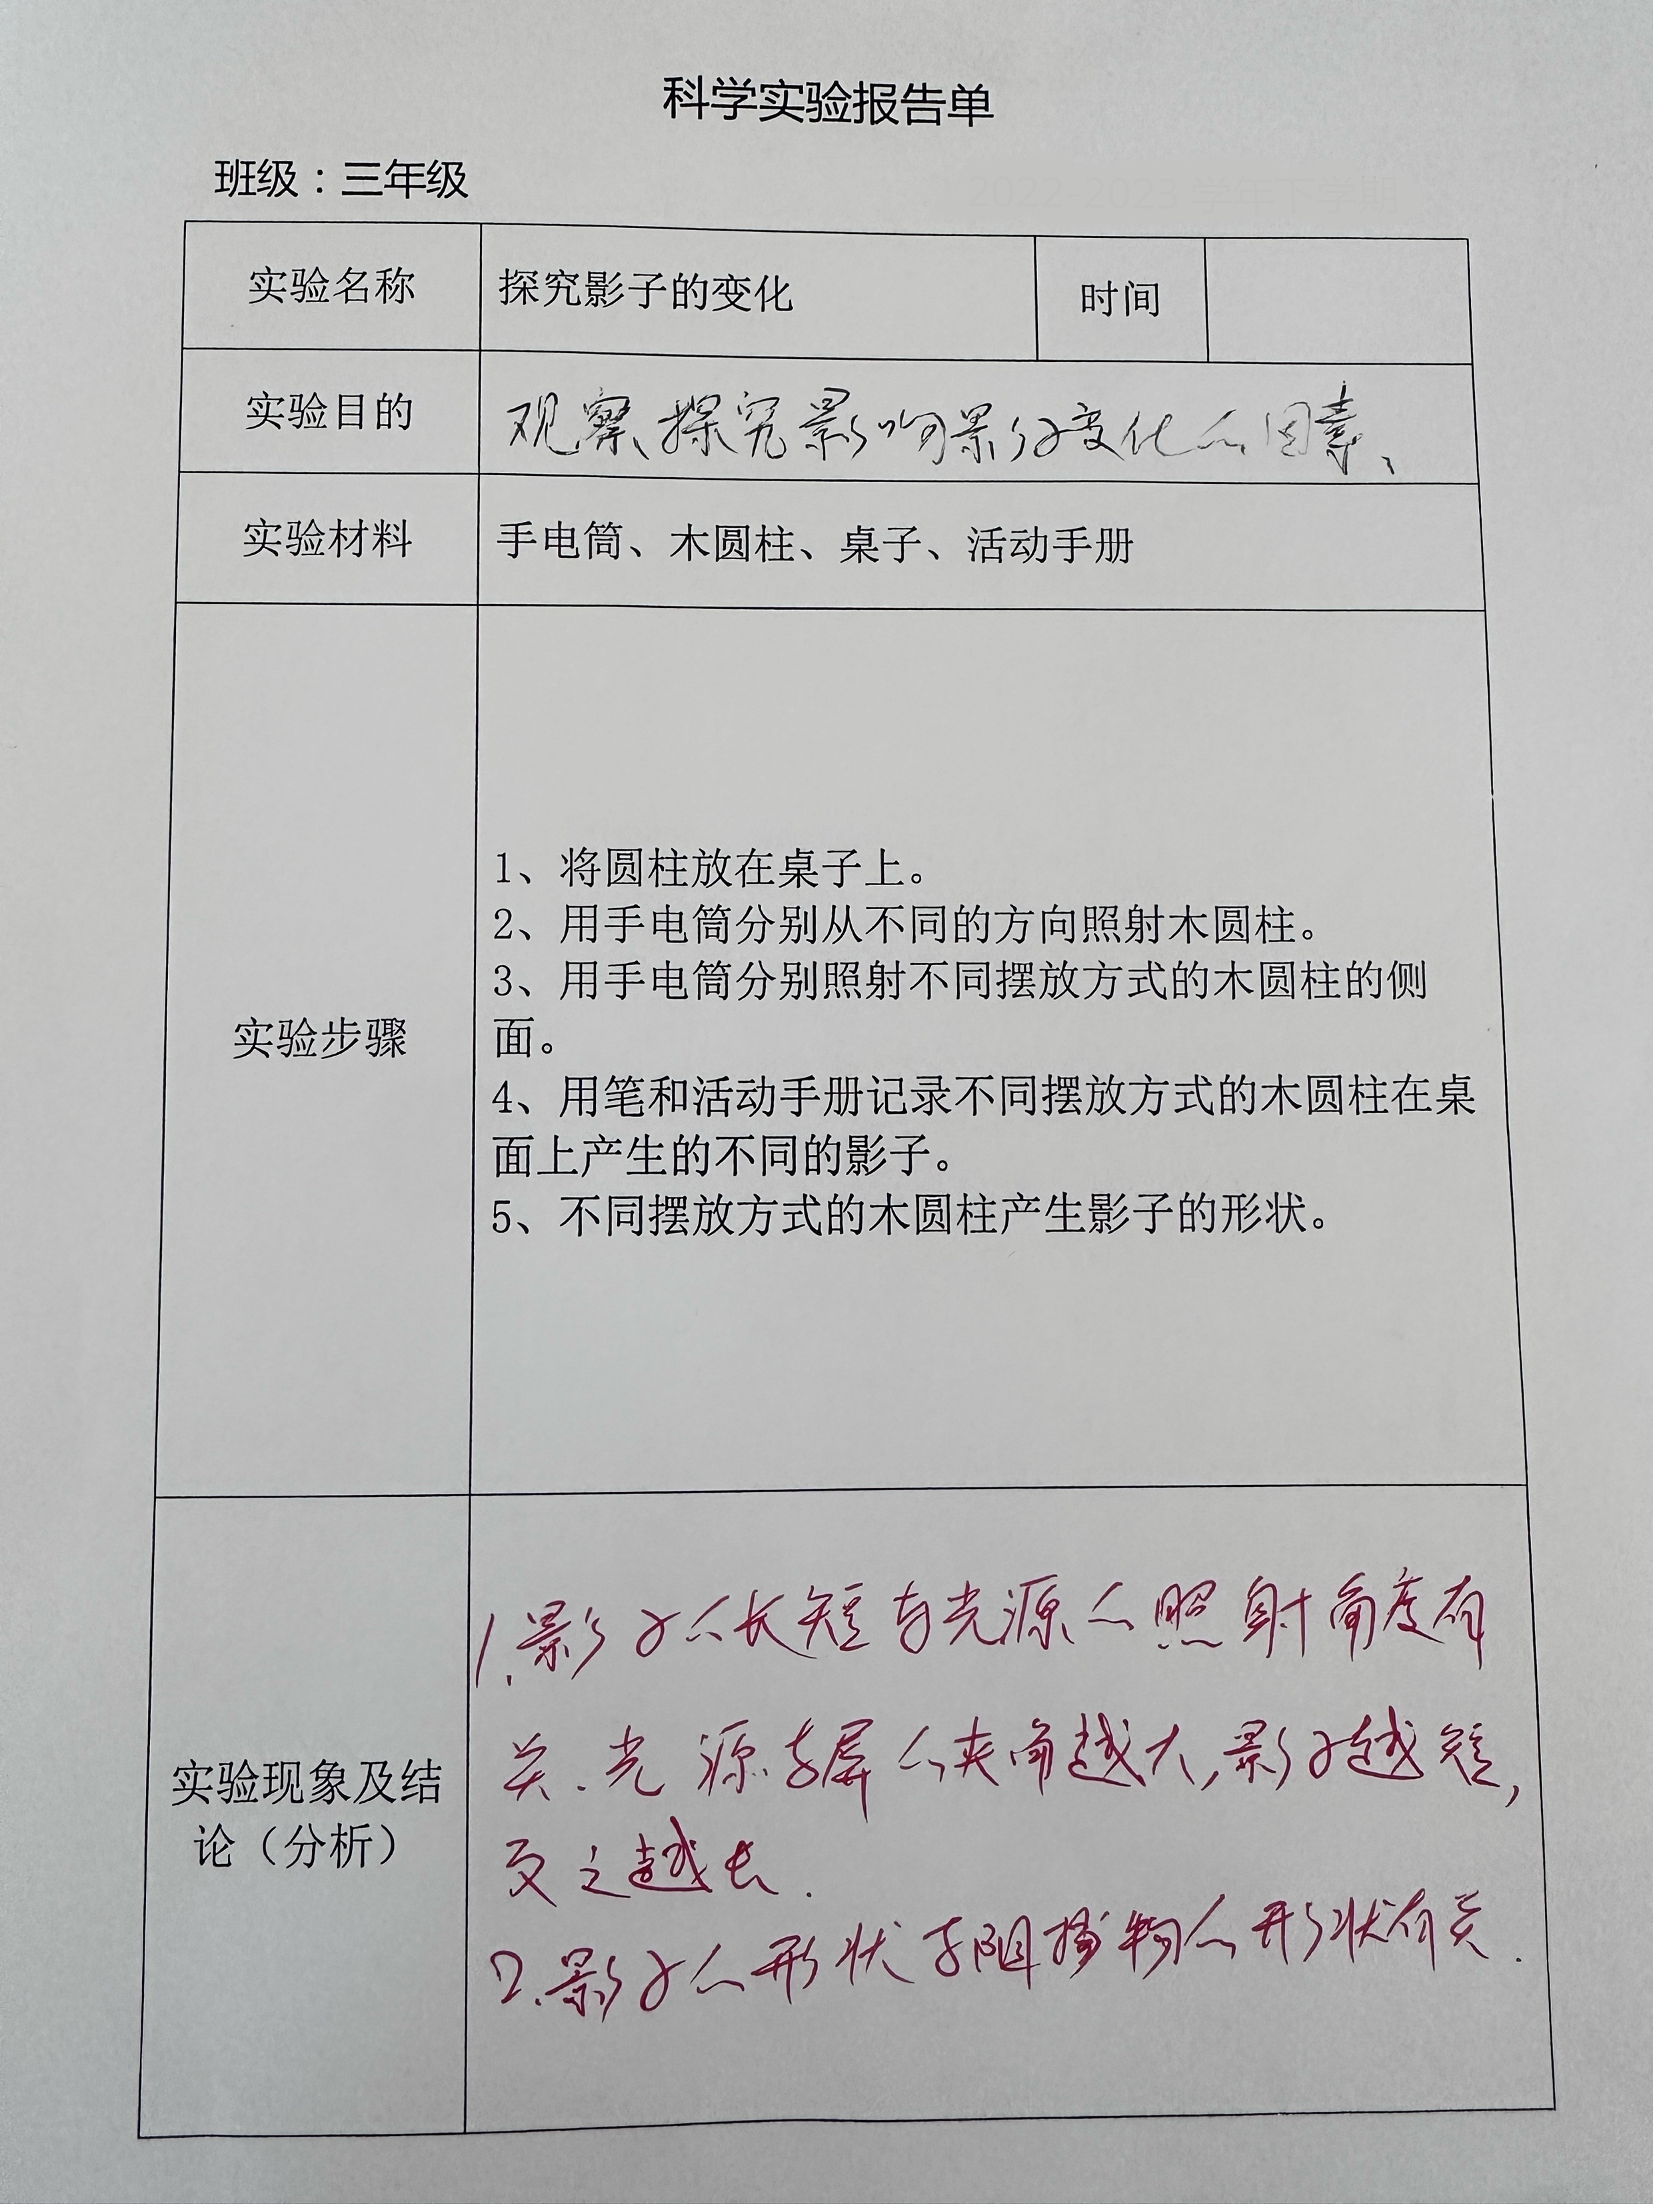 科学实验报告单
班级：三年级
实验名称 探究影子的变化 时间
实验目的 观察、探究影响影子变化的因素、
实验材料 手电筒、木圆柱、桌子、活动手册
实验步骤
1、将圆柱放在桌子上。
2、用手电筒分别从不同的方向照射木圆柱。
3、用手电筒分别照射不同摆放方式的木圆柱的侧
面。
4、用笔和活动手册记录不同摆放方式的木圆柱在桌
面上产生的不同的影子。
5、不同摆放方式的木圆柱产生影子的形状。
实验现象及结
论（分析）
1.影子的长短与光源的照射角度有
关.光源与屏的夹角越大,影子越短,
反之越长.
2.影子的形状与阻挡物的形状有关.